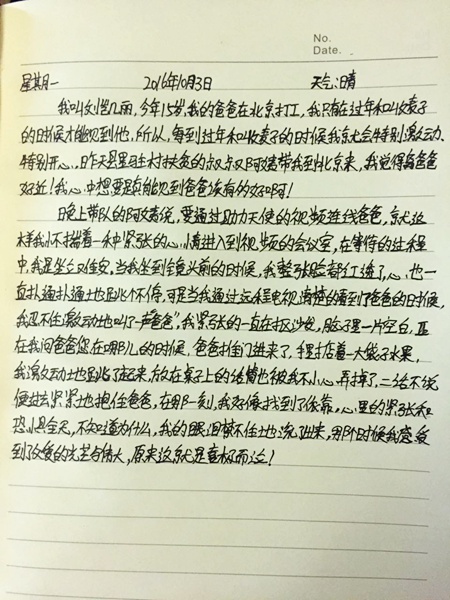 No.
Date.
星期一 2016年10月3日 天气:晴
我叫刘 雨,今年15岁,我的爸爸在北京打工,我只有在过年和收麦子
的时候才能见到他,所以,每到过年和收麦子的时候我就会特别激动、
特别开心,昨天县里驻村扶贫的叔叔阿姨带我到北京来,我觉得离爸爸
好近!我心中想要是真能见到爸爸该有的好啊!
晚上带队的阿姨说,要通过助力天使的视频连线爸爸,就这
样我怀揣着一种紧张的心情进入到视频的会议室,在等待的过程
中,我是坐立难安,当我坐到镜头前的时候,我整张脸都红透了,心也一
直扑通扑通地跳个不停,可是当我通过远程电视清楚的看到了爸爸的时候,
我忍不住激动地叫了一声"爸爸",我紧张的一直在抠沙发,脑子里一片空白,正
在我问爸爸您在哪儿的时候,爸爸推门进来了,手里拎着一大袋子水果,
我激动地跳了起来,放在桌子上的 也被我不小心弄掉了,二话不说
便过去紧紧地抱住爸爸,在那一刻,我好像找到了依靠,心里的紧张和
恐惧全无,不知道为什么,我的眼泪禁不住地流出来,那个时候我感受
到了父爱的光芒与伟大,原来这就是喜极而泣!